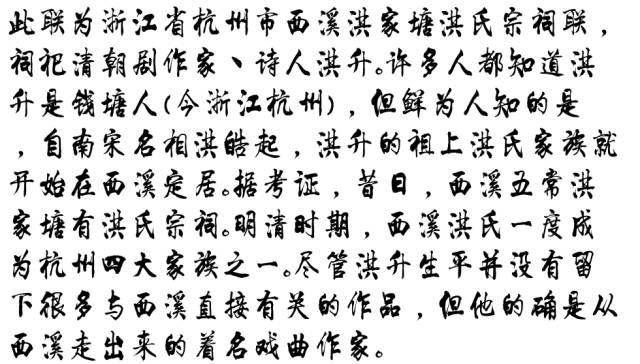 此联为浙江省杭州市西溪洪家塘洪氏宗祠联，
祠祀清朝剧作家、诗人洪升。许多人都知道洪
升是钱塘人(今浙江杭州)，但鲜为人知的是
，自南宋名相洪皓起，洪升的祖上洪氏家族就
开始在西溪定居。据考证，昔日，西溪五常洪
家塘有洪氏宗祠。明清时期，西溪洪氏一度成
为杭州四大家族之一。尽管洪升生平并没有留
下很多与西溪直接有关的作品，但他的确是从
西溪走出来的着名戏曲作家。